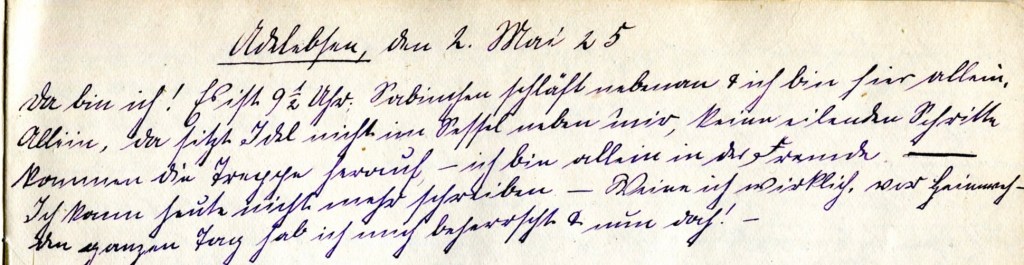 Adelebsen, den 2. Mai 25
Da bin ich! Es ist 9 1/2 Uhr. Sabinchen schläft nebenan & ich bin hier allein.
Allein, da sitzt Idel nicht im Sessel neben mir, keine eilenden Schritte
kommen die Treppe herauf, – ich bin allein in der Fremde. —
Ich kann heute nicht mehr schreiben – Weine ich wirklich, vor Heimweh –
den ganzen Tag hab ich mich beherrscht & nun doch! –